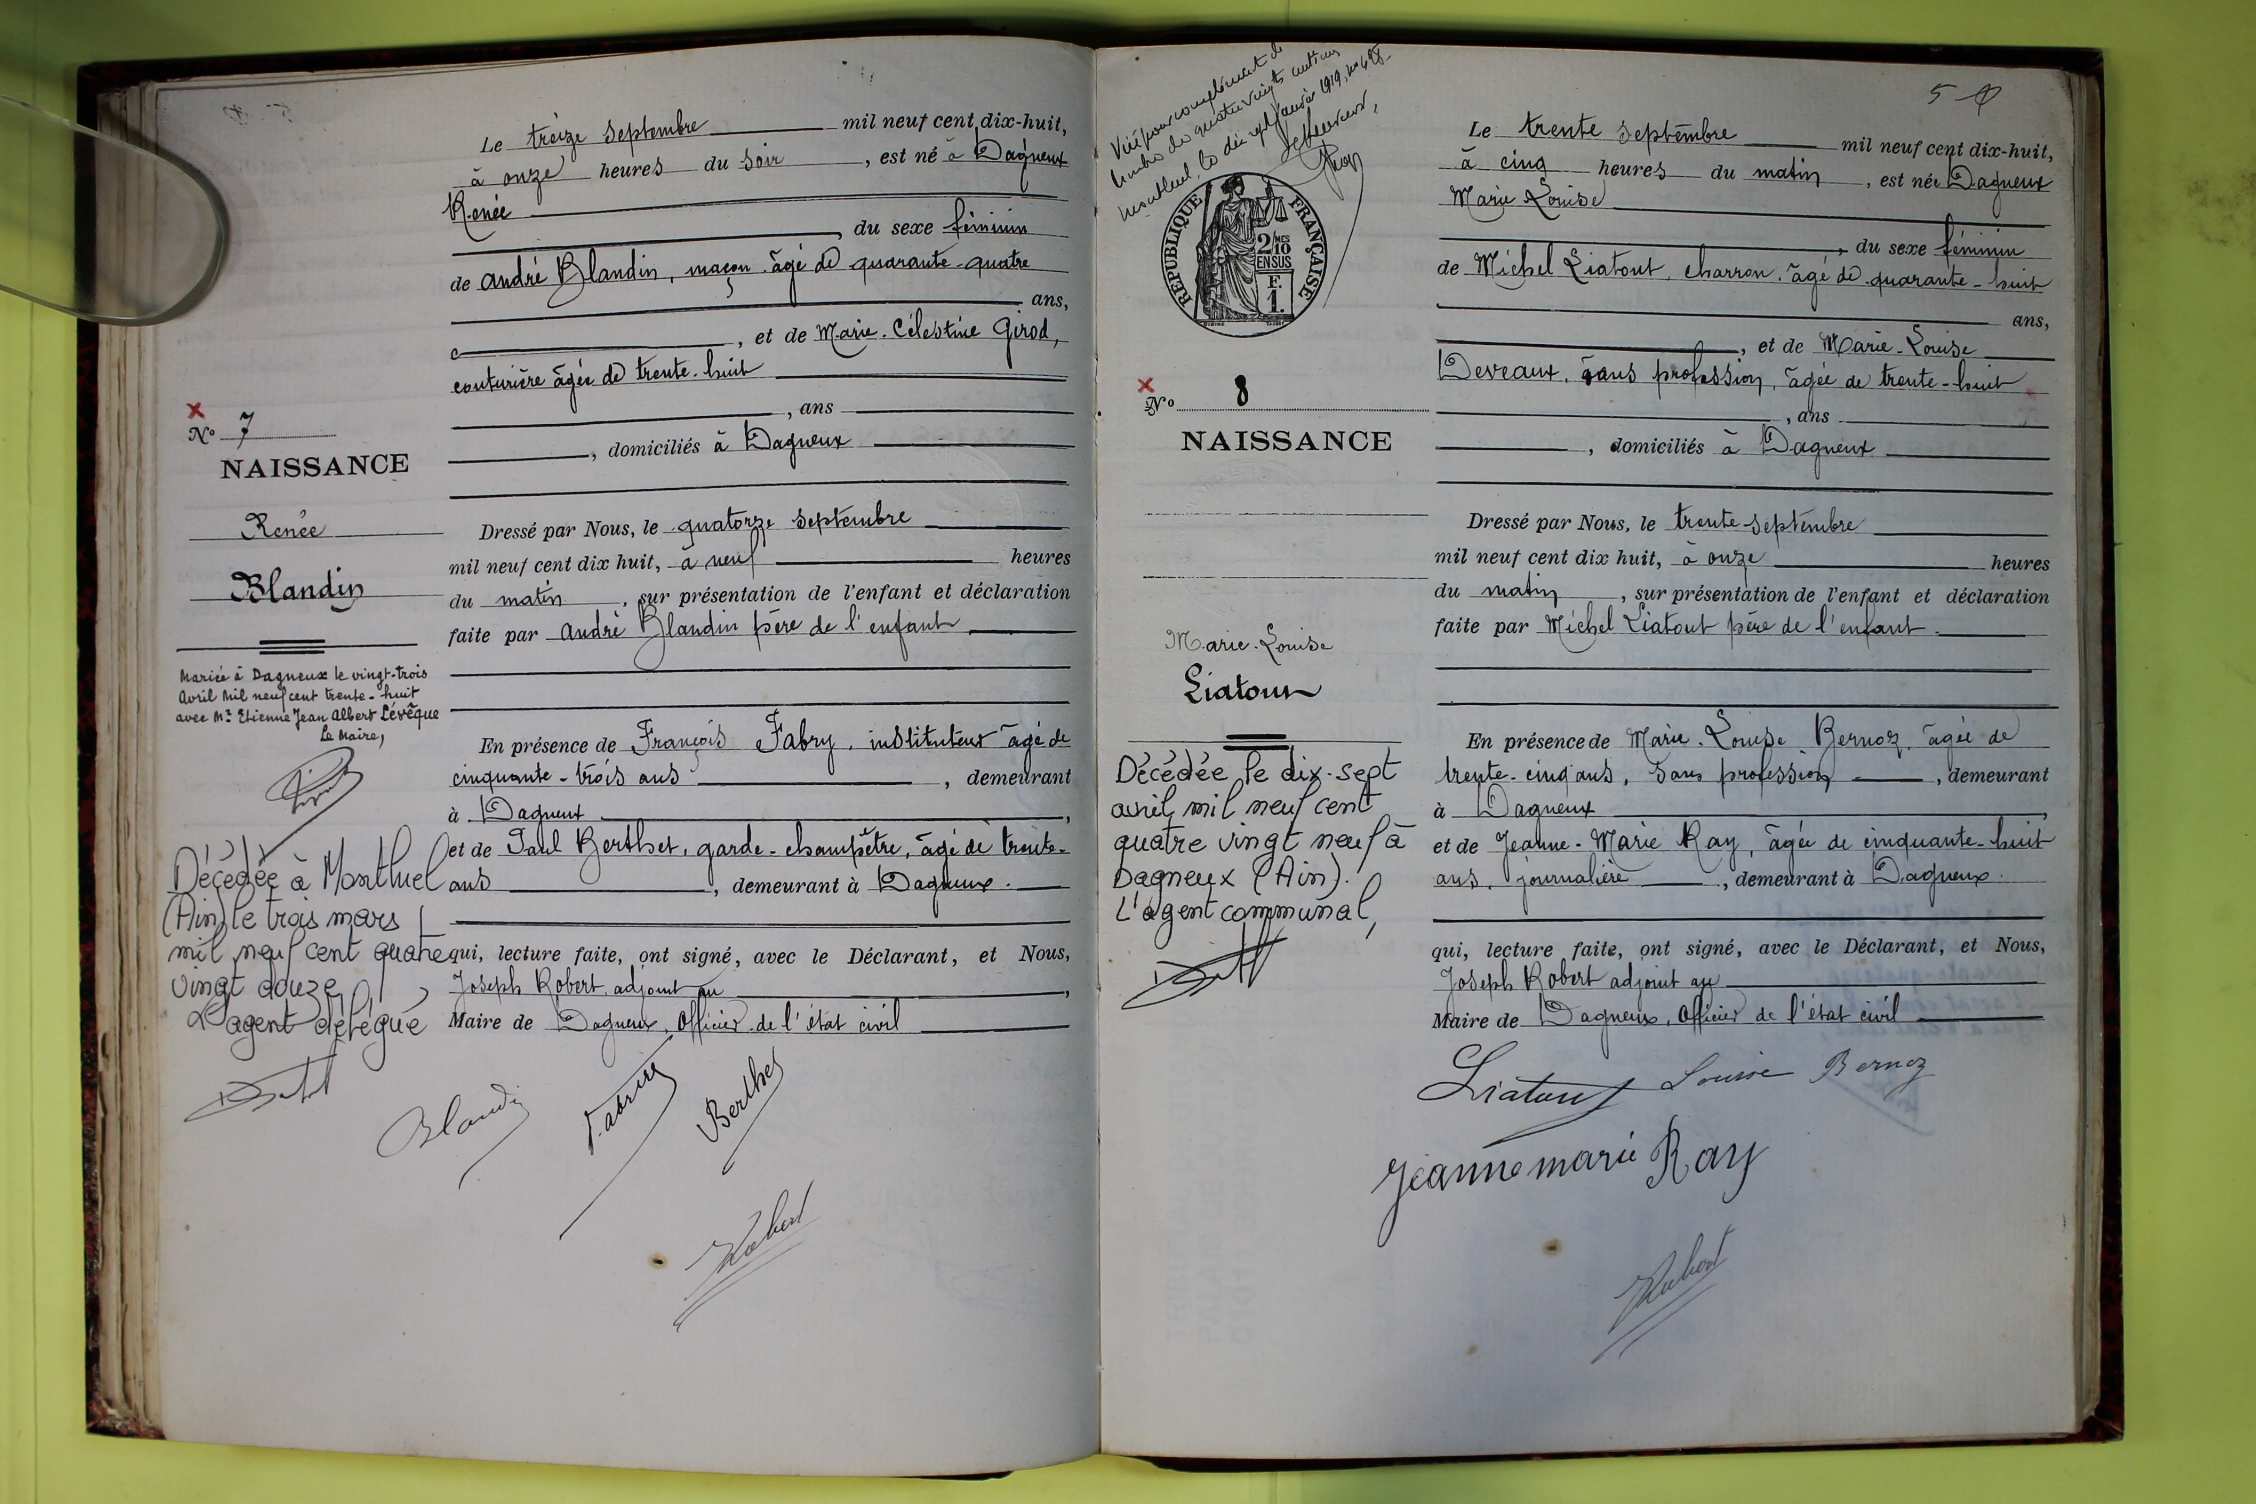 Le treize septembre mil neuf cent dix-huit,
à onze heures du soir, est né à Dagneux
Renée
, du sexe féminin
de André Blandin, maçon âgé de quarante-quatre
ans,
, et de Marie-Célestine Girod,
couturière âgée de trente-huit
, ans
, domiciliés à Dagneux
Dressé par Nous, le quatorze septembre
mil neuf cent dix huit, à neuf heures
du matin, sur présentation de l'enfant et déclaration
faite par André Blandin père de l'enfant
En présence de François Fabry, instituteur âgé de
cinquante-trois ans, demeurant
à Dagneux,
et de Paul Berthet, garde-champêtre, âgé de trente-
ans, demeurant à Dagneux.
qui, lecture faite, ont signé, avec le Déclarant, et Nous,
Joseph Robert, adjoint au,
Maire de Dagneux, Officier de l'état civil
Blandin
Berthet
Robert
No 7
NAISSANCE
Renée
Blandin
Mariée à Dagneux le vingt-trois
Avril mil neuf cent trente-huit
avec Mr Etienne Jean Albert Lévêque
Le Maire,
Décédée à Montluel
(Ain) le trois mars
mil neuf cent quatre
vingt douze
L'agent délégué
Visé pour complément de
timbre de quatre vingts centimes
Montluel, le dix sept janvier 1919, no 498
Le Receveur,
RÉPUBLIQUE FRANÇAISE
2/10 MES
EN SUS
F.
1.
No 8
NAISSANCE
Marie-Louise
Liatout
Décédée le dix-sept
avril mil neuf cent
quatre vingt neuf à
Dagneux (Ain).
L'agent communal,
5
Le trente septembre mil neuf cent dix-huit,
à cinq heures du matin, est née Dagneux
Marie Louise
, du sexe féminin
de Michel Liatout, charron, âgé de quarante-huit
ans,
, et de Marie-Louise
Deveaux, sans profession, âgée de trente-huit
, ans
, domiciliés à Dagneux
Dressé par Nous, le trente septembre
mil neuf cent dix huit, à onze heures
du matin, sur présentation de l'enfant et déclaration
faite par Michel Liatout père de l'enfant.
En présence de Marie-Louise Bernoz, âgée de
trente-cinq ans, sans profession, demeurant
à Dagneux,
et de Jeanne-Marie Ray, âgée de cinquante-huit
ans, journalière, demeurant à Dagneux.
qui, lecture faite, ont signé, avec le Déclarant, et Nous,
Joseph Robert adjoint au
Maire de Dagneux, Officier de l'état civil
Liatout Louise Bernoz
Jeanne marie Ray
Robert